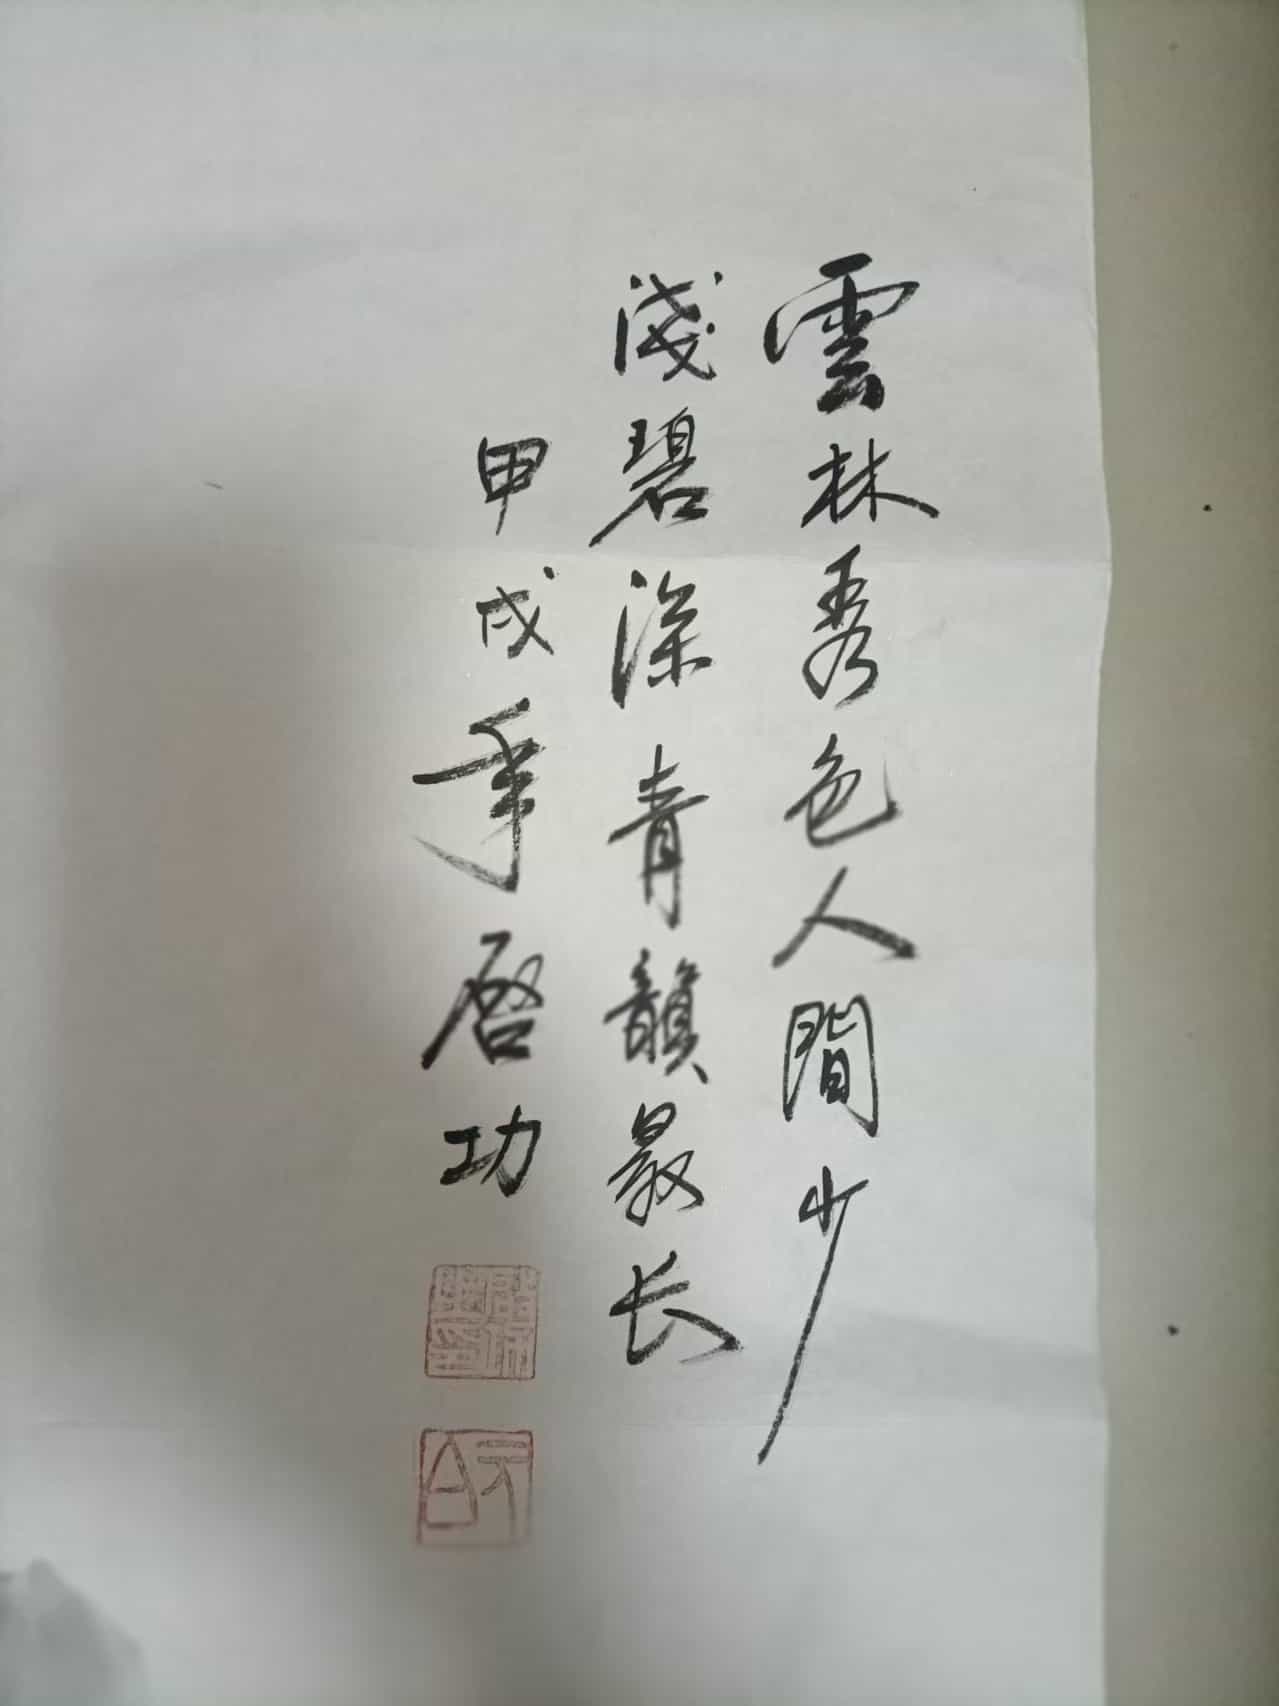 雲林秀色人間少
淺碧深青韻最长
甲戌年啓功
元白